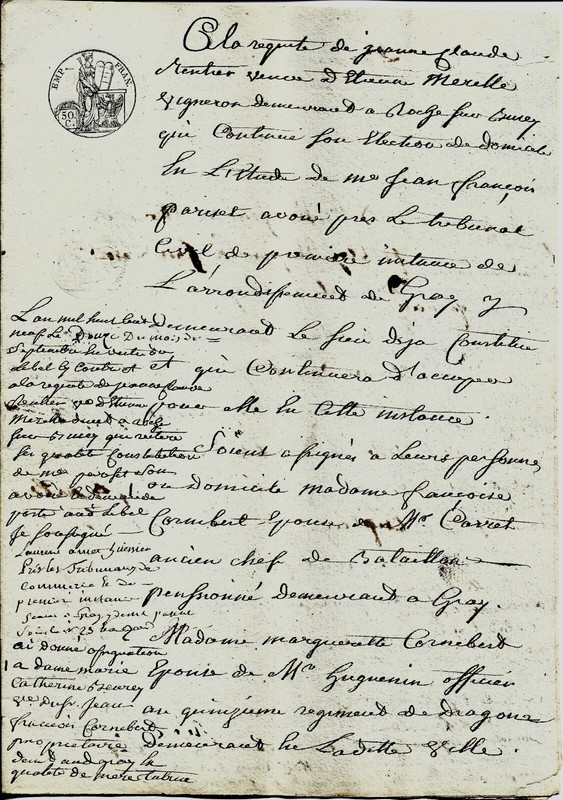 EMP. FRAN.
50 C.
A la requete de jeanne Claude
Rentier veuve d'Etienne Merelle
vigneron demeurant a Roche sur
qui Continue son Election de domicile
En L'Etude de me Jean françois
pariset avoué pres Le tribunal
Civil de premiere instance de
L'arrondissement de Gray y
Demeurant Le sieur deja Constitué
et qui Continuera d'occuper
pour elle En Cette instance.
Soient assignés a Leurs personnes
ou Domicile madame francoise
Cornibert Epouse de Mr Carret
ancien chef de Bataillon
pensionné demeurant a Gray.
Madame marguerette Cornibert
Epouse de Mr Huguenin officier
au quinzieme regiment de dragons
demeurant En Laditte Ville.
L'an mil huit Cent
neuf Le Douze Du mois de
Septembre En vertu du
Libel Cy Contre et
a la requete de jeanne Claude
Rentier ve d'Etienne
Merelle demt a Roche
sur qui reitere
sa Constitution
de me pariset son
avoué
porté audit Libel
Je soussigné
huissier
Pres les Tribunaux de
Commerce et de
premier instance
Seant a Gray y demt patenté
ai donné assignation
1 a dame marie
Catherine
ve du Sr. Jean
francois Cornibert
proprietaire
demt audit gray En
qualité de mere tutrice